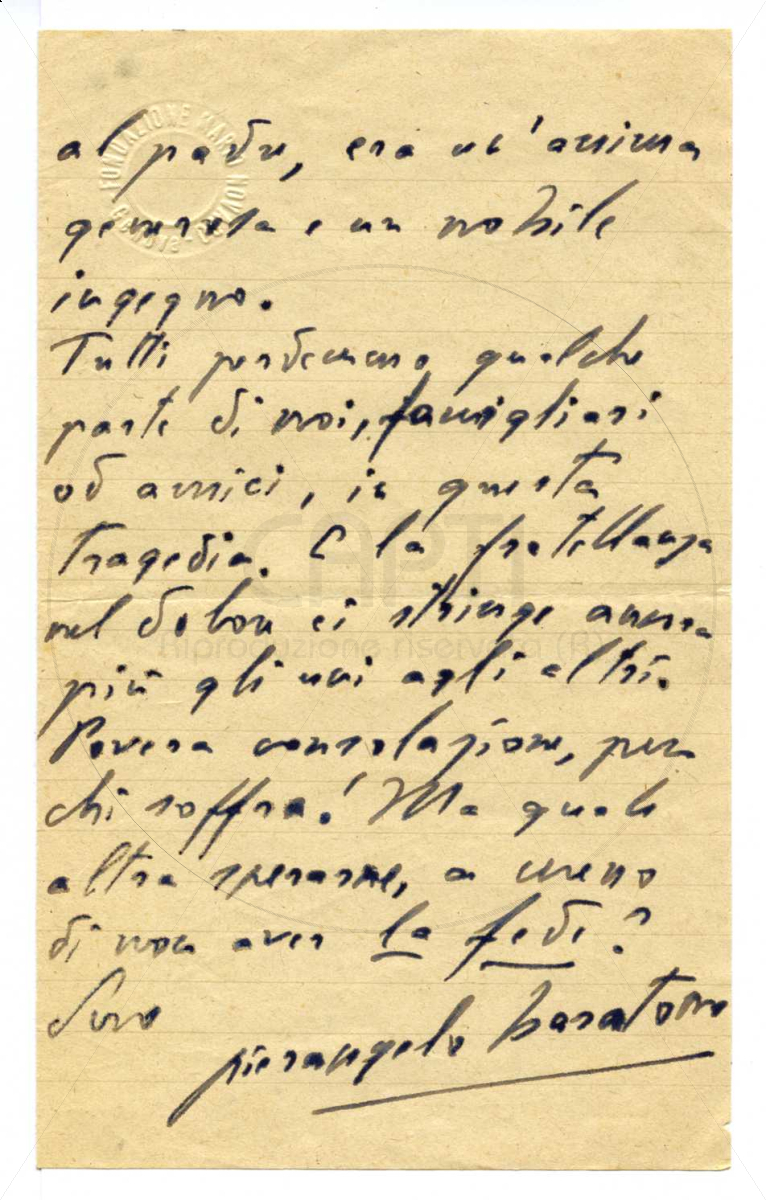 FONDAZIONE MARIO NOVARO
al padre, era un'anima
generosa e un nobile
ingegno.
Tutti perdemmo qualche
parte di noi, famigliari
od amici, in questa
tragedia. E la fratellanza
nel dolore ci stringe ancora
più gli uni agli altri.
Povera consolazione, per
chi soffra! Ma quale
altra sperarne, a meno
di non aver la fede?
Suo
pierangelo baratono
CAPTI
Riproduzione riservata (R)